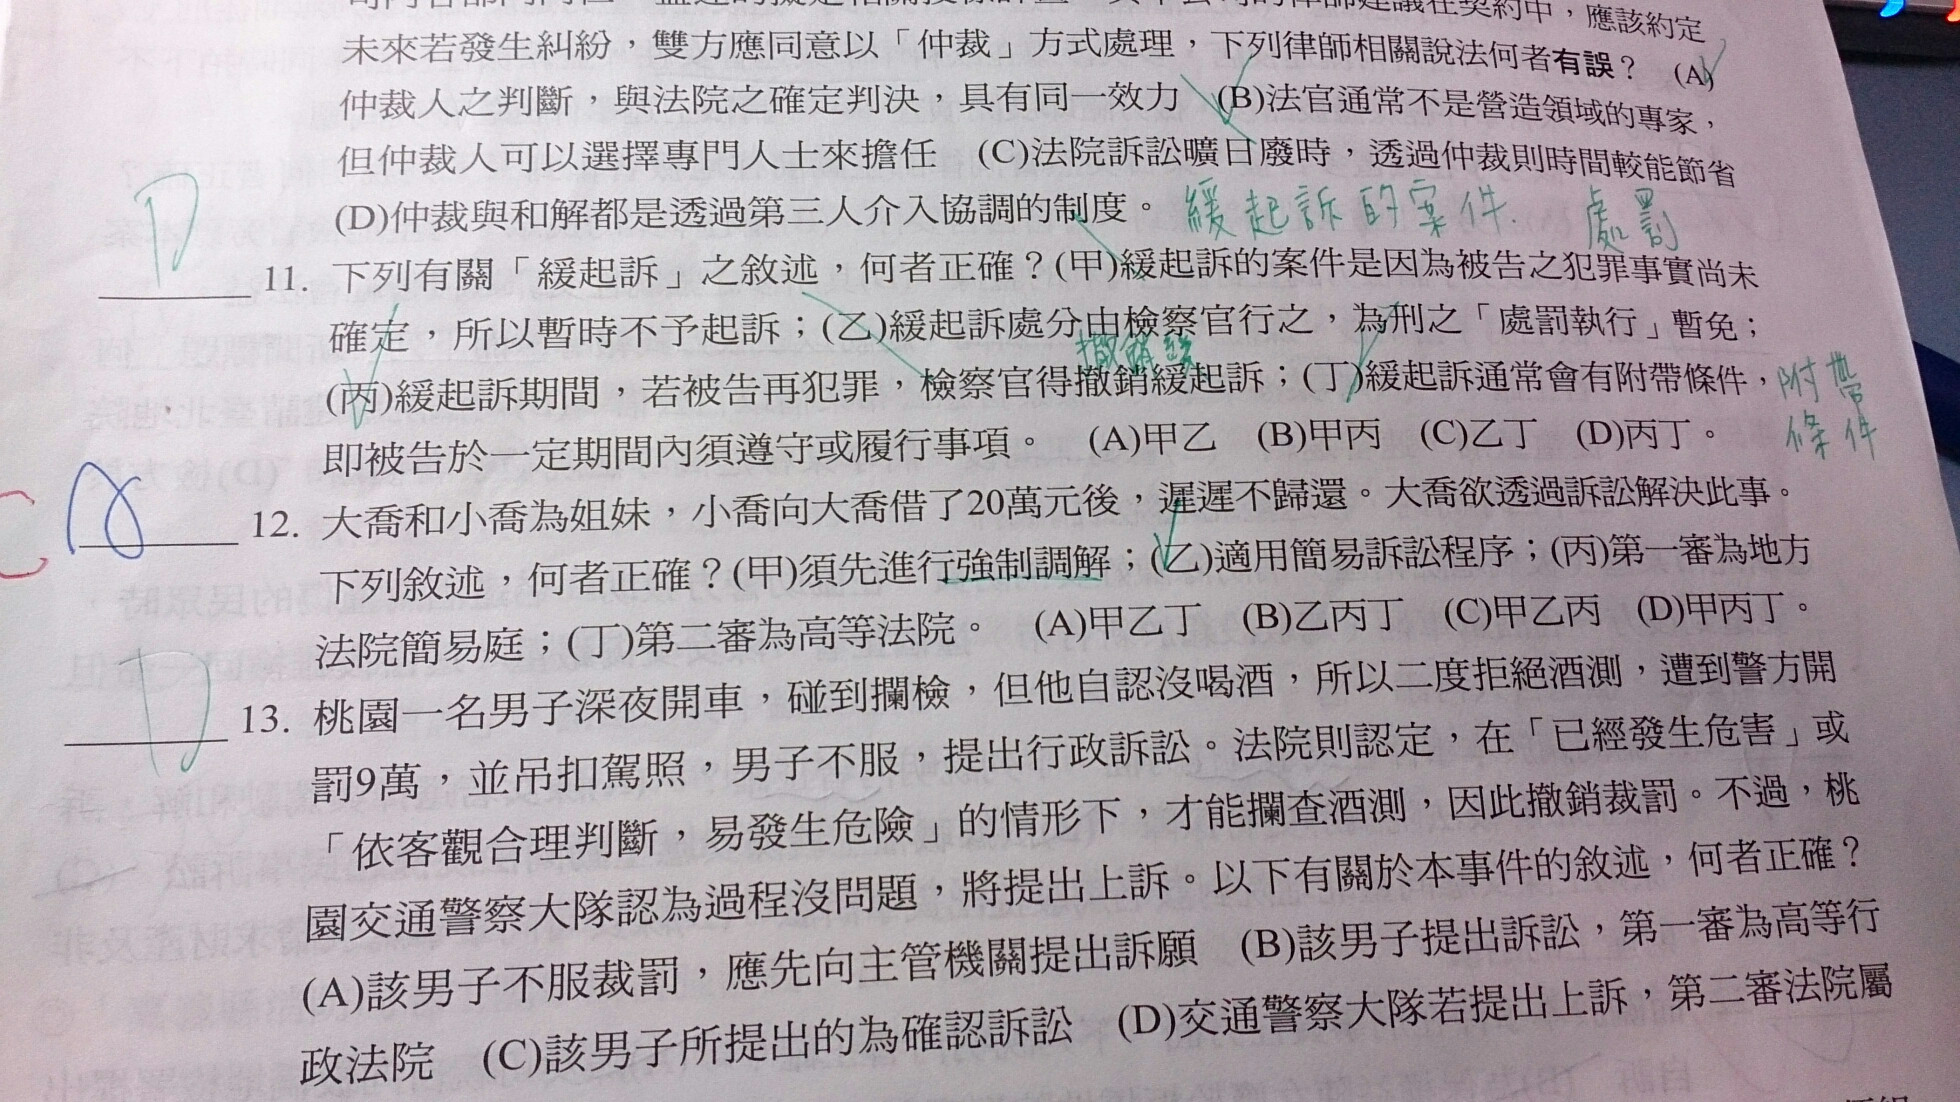 應該約定
未來若發生糾紛，雙方應同意以「仲裁」方式處理，下列律師相關說法何者有誤？ (A)
仲裁人之判斷，與法院之確定判決，具有同一效力 (B)法官通常不是營造領域的專家，
但仲裁人可以選擇專門人士來擔任 (C)法院訴訟曠日廢時，透過仲裁則時間較能節省
(D)仲裁與和解都是透過第三人介入協調的制度。 緩起訴的案件. 處罰
D 11. 下列有關「緩起訴」之敘述，何者正確？(甲)緩起訴的案件是因為被告之犯罪事實尚未
確定，所以暫時不予起訴；(乙)緩起訴處分由檢察官行之，為刑之「處罰執行」暫免；
撤銷
(丙)緩起訴期間，若被告再犯罪，檢察官得撤銷緩起訴；(丁)緩起訴通常會有附帶條件， 附帶
即被告於一定期間內須遵守或履行事項。 (A)甲乙 (B)甲丙 (C)乙丁 (D)丙丁。 條件
C 12. 大喬和小喬為姐妹，小喬向大喬借了20萬元後，遲遲不歸還。大喬欲透過訴訟解決此事。
下列敘述，何者正確？(甲)須先進行強制調解；(乙)適用簡易訴訟程序；(丙)第一審為地方
法院簡易庭；(丁)第二審為高等法院。 (A)甲乙丁 (B)乙丙丁 (C)甲乙丙 (D)甲丙丁。
D 13. 桃園一名男子深夜開車，碰到攔檢，但他自認沒喝酒，所以二度拒絕酒測，遭到警方開
罰9萬，並吊扣駕照，男子不服，提出行政訴訟。法院則認定，在「已經發生危害」或
「依客觀合理判斷，易發生危險」的情形下，才能攔查酒測，因此撤銷裁罰。不過，桃
園交通警察大隊認為過程沒問題，將提出上訴。以下有關於本事件的敘述，何者正確？
(A)該男子不服裁罰，應先向主管機關提出訴願 (B)該男子提出訴訟，第一審為高等行
政法院 (C)該男子所提出的為確認訴訟 (D)交通警察大隊若提出上訴，第二審法院屬